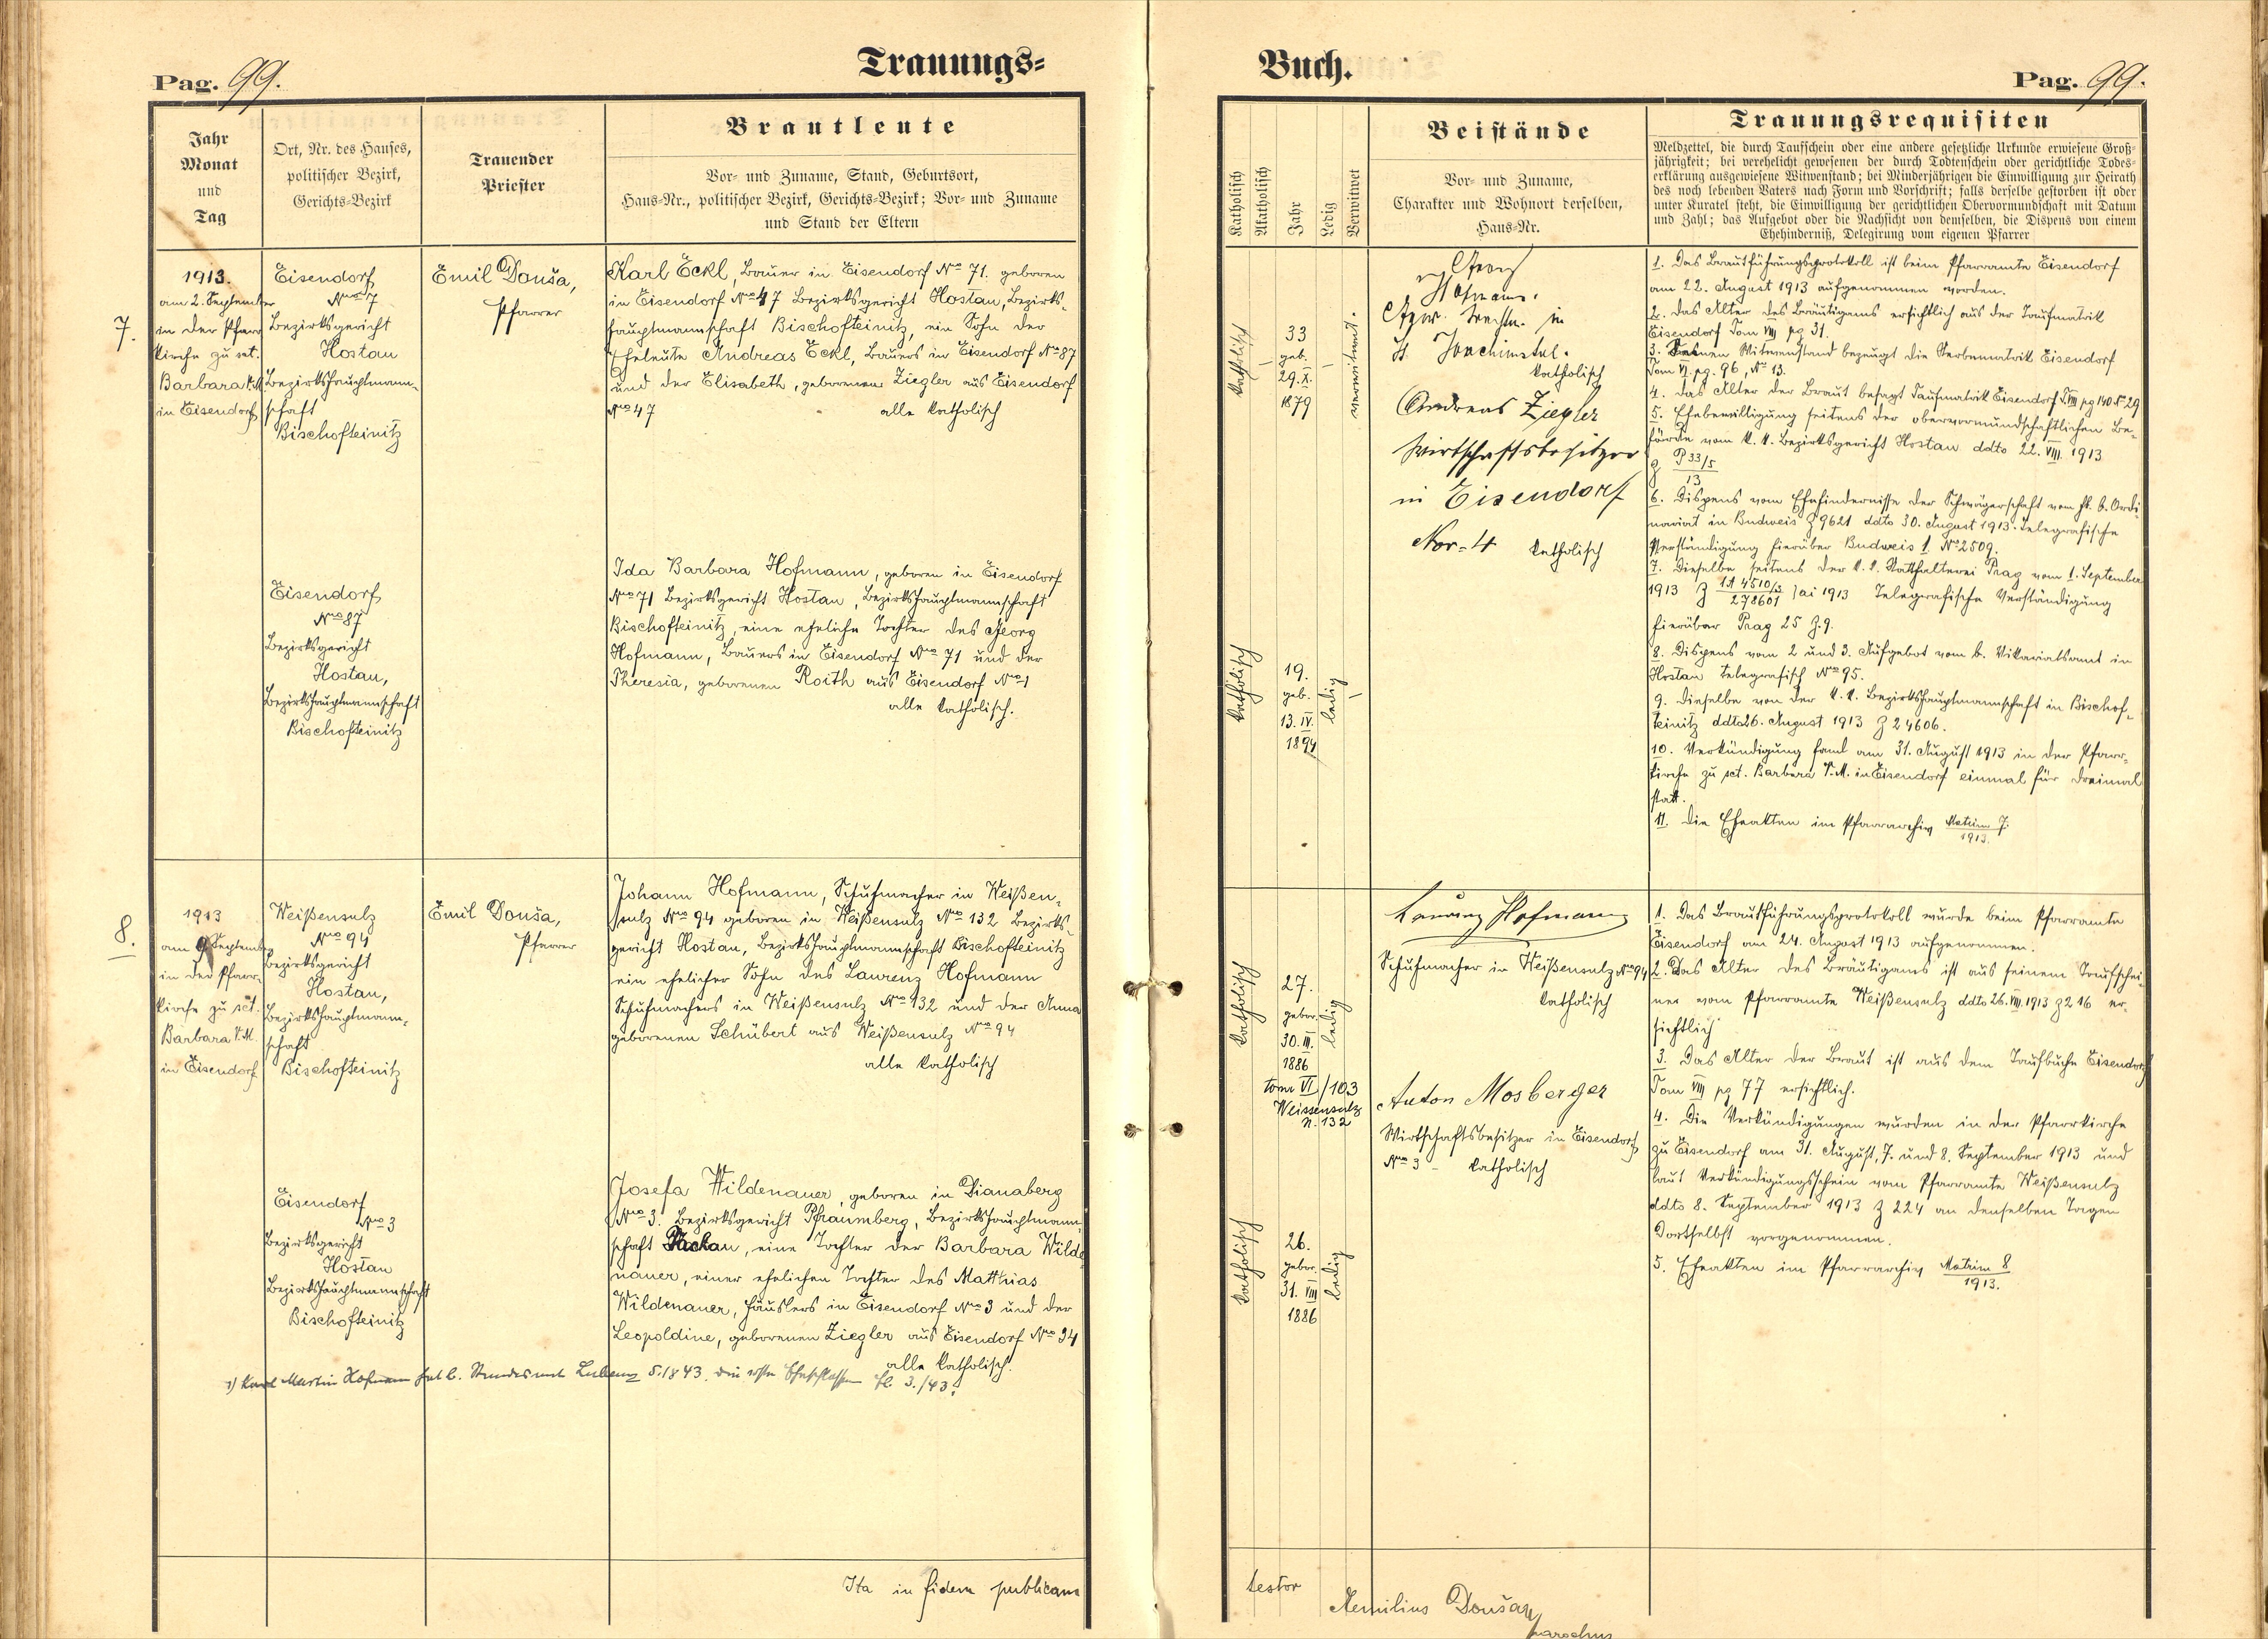 Trauungs=
Pag. 99.
Jahr
Monat
und
Tag
Ort, Nr. des Hauses,
politischer Bezirk,
Gerichts=Bezirk
Trauender
Priester
Brautleute
Vor= und Zuname, Stand, Geburtsort,
Haus=Nr., politischer Bezirk, Gerichts=Bezirk; Vor= und Zuname
und Stand der Eltern
7.
1913.
am 2. September
in der Pfarr
kirche zu sct.
Barbara V.M.
in Eisendorf
Eisendorf
Nro 7
Bezirksgericht
Hostau
Bezirkshauptmann-
schaft
Bischofteinitz
Emil Douša,
Pfarrer
Karl Eckl, Bauer in Eisendorf Nro 71. geboren
in Eisendorf Nro 47 Bezirksgericht Hostau, Bezirks-
hauptmannschaft Bischofteinitz, ein Sohn der
Eheleute Andreas Eckl, Bauers in Eisendorf Nro 87
und der Elisabeth, geborenen Ziegler aus Eisendorf
Nro 47 alle katholisch
Eisendorf
Nro 87
Bezirksgericht
Hostau,
Bezirkshauptmannschaft
Bischofteinitz
Ida Barbara Hofmann, geboren in Eisendorf
Nro 71 Bezirksgericht Hostau, Bezirkshauptmannschaft
Bischofteinitz, eine eheliche Tochter des Georg
Hofmann, Bauers in Eisendorf Nro 71 und der
Theresia, geborenen Roith aus Eisendorf Nro 1
alle katholisch.
8.
1913
am 9. September
in der Pfarr-
kirche zu sct.
Barbara V.M.
in Eisendorf
Weißensulz
Nro 94
Bezirksgericht
Hostau,
Bezirkshauptmann-
schaft
Bischofteinitz
Emil Douša,
Pfarrer
Johann Hofmann, Schuhmacher in Weißen-
sulz Nro 94 geboren in Weißensulz Nro 132 Bezirks-
gericht Hostau, Bezirkshauptmannschaft Bischofteinitz
ein ehelicher Sohn des Laurenz Hofmann
Schuhmachers in Weißensulz Nro 132 und der Anna
geborenen Schübert aus Weißensulz Nro 94
alle katholisch
Eisendorf
Nro 3
Bezirksgericht
Hostau
Bezirkshauptmannschaft
Bischofteinitz
Josefa Wildenauer, geboren in Dianaberg
Nro 3. Bezirksgericht Pfraumberg, Bezirkshauptmann-
schaft Tachau, eine Tochter der Barbara Wilde
nauer, einer ehelichen Tochter des Matthias
Wildenauer, Häuslers in Eisendorf Nro 3 und der
Leopoldine, geborenen Ziegler aus Eisendorf Nro 34
alle katholisch.
1) Karl Martin Hofmann hat b. Standesamt
Ita in fidem publicam
Buch.
Pag. 99.
Katholisch
Akatholisch
Jahr
Ledig
Verwitwet
Beistände
Vor= und Zuname,
Charakter und Wohnort derselben,
Haus=Nr.
Trauungsrequisiten
Meldzettel, die durch Taufschein oder eine andere gesetzliche Urkunde erwiesene Groß=
jährigkeit; bei verehelicht gewesenen der durch Todtenschein oder gerichtliche Todes=
erklärung ausgewiesene Witwenstand; bei Minderjährigen die Einwilligung zur Heirath
des noch lebenden Vaters nach Form und Vorschrift; falls derselbe gestorben ist oder
unter Kuratel steht, die Einwilligung der gerichtlichen Obervormundschaft mit Datum
und Zahl; das Aufgebot oder die Nachsicht von demselben, die Dispens von einem
Ehehinderniß, Delegirung vom eigenen Pfarrer
katholisch
33
geb.
29. X.
1879
verwitwet.
Georg
Hofmann.
in
St. Joachimstal.
katholisch
Andreas Ziegler
Wirtschaftsbesitzer
in Eisendorf
Nro - 4 katholisch
1. Das Brautführungsprotokoll ist beim Pfarramte Eisendorf
am 22. August 1913 aufgenommen worden.
2. Das Alter des Bräutigams ersichtlich aus der Taufmatrik
Eisendorf Tom VIII pg 31.
3. Seinen Witwenstand bezeugt die Sterbematrik Eisendorf
Tom VI. pg. 96, No 13.
4. Das Alter der Braut besagt Taufmatrik Eisendorf T. VIII pg 140 No 29
5. Ehebewilligung seitens der obervormundschaftlichen Be-
hörde vom k. k. Bezirksgericht Hostau ddto 22. VIII. 1913
Z P 33/5
13
6. Dispens vom Ehehindernisse der Schwägerschaft vom b. Ordi
nariat in Budweis Z 9621 ddto 30. August 1913. Telegrafische
Verständigung hierüber Budweis 1 No 2509.
7. Dieselbe seitens der k. k. Statthalterei Prag vom 1. September
1913 Z 1A 4510/3
278601 ai 1913 Telegrafische Verständigung
hierüber Prag 25 Z. 9.
8. Dispens vom 2 und 3. Aufgebot vom b. Vikariatsamt in
Hostau telegrafisch No 95.
9. Dieselbe von der k. k. Bezirkshauptmannschaft in Bischof-
teinitz ddto 26. August 1913 Z 24606.
10. Verkündigung fand am 31. August 1913 in der Pfarr-
kirche zu sct. Barbara V.M. in Eisendorf einmal für dreimal
statt.
11. Die Eheakten im Pfarrarchiv Matrim 7.
1913.
katholisch
19.
geb.
13. IV.
1894
ledig
katholisch
27.
gebor.
30. III.
1886
ledig
tom VI/103
Weissensulz
N. 132
Laurenz Hofmann
Schuhmacher in Weißensulz Nro 94
katholisch
Anton Mosberger
Wirtschaftsbesitzer in Eisendorf
Nro 3 - katholisch
1. Das Brautführungsprotokoll wurde beim Pfarramte
Eisendorf am 24. August 1913 aufgenommen.
2. Das Alter des Bräutigams ist aus seinem Taufschei-
ne vom Pfarramte Weißensulz ddto 26. VIII. 1913 Z 216 er-
sichtlich
3. Das Alter der Braut ist aus dem Taufbuche Eisendorf
Tom VIII pg 77 ersichtlich.
4. Die Verkündigungen wurden in der Pfarrkirche
zu Eisendorf am 31. August, 7. und 8. September 1913 und
laut Verkündigungsschein vom Pfarramte Weißensulz
ddto 8. September 1913 Z 224 an denselben Tagen
dortselbst vorgenommen.
5. Eheakten im Pfarrarchiv Matrim 8
1913.
katholisch
26.
gebor.
31. VIII
1886
ledig
testor
Aemilius Douša
parochus